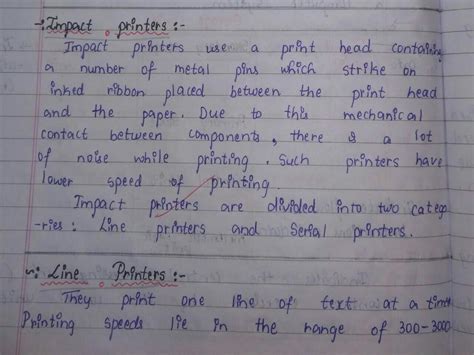 -: Impact printers :-
Impact printers use a print head containing
a number of metal pins which strike on
inked ribbon placed between the print head
and the paper. Due to this mechanical
contact between components, there is a lot
of noise while printing. Such printers have
lower speed of printing.
Impact printers are divided into two catego
-ries : Line printers and Serial printers.
Line Printers :-
They print one line of text at a time
Printing speeds lie in the range of 300-3000